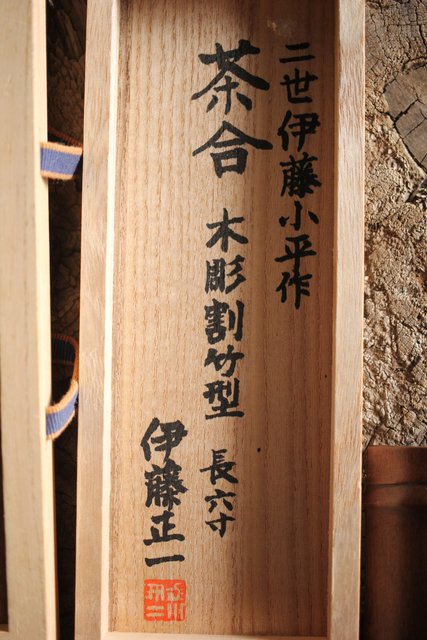 二世伊藤小平作
茶合 木彫割竹型 長六寸
伊藤正一